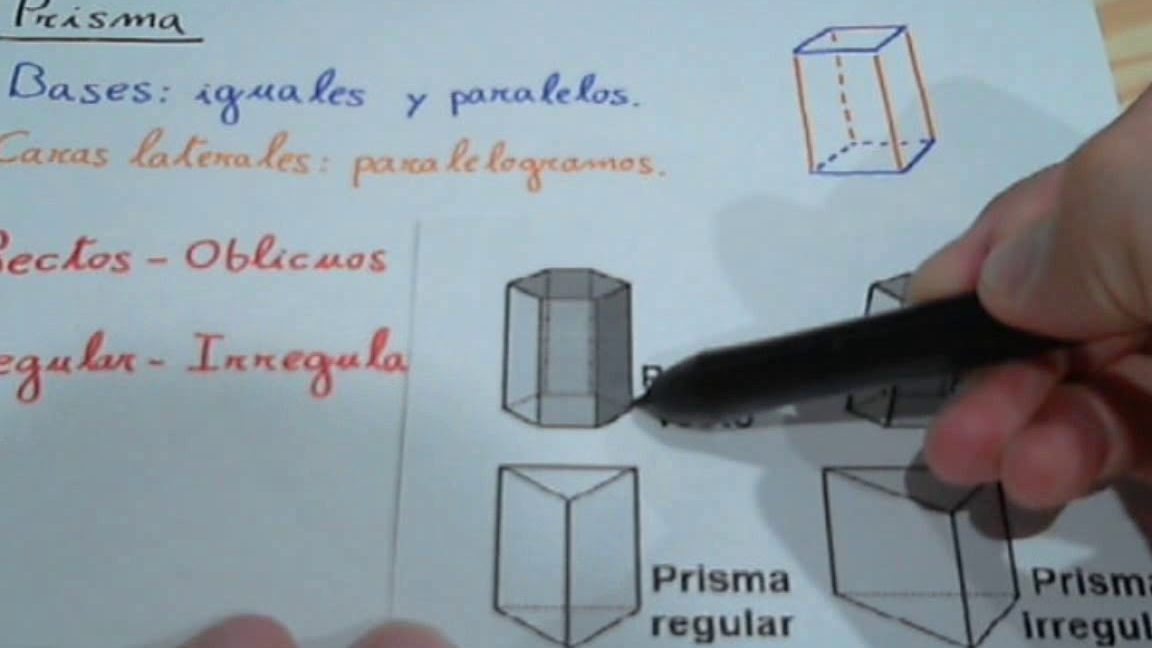 Prisma
Bases: iguales y paralelos.
Caras laterales: paralelogramos.
Rectos - Oblicuos
egular - Irregula
Prisma
regular
Prisma
Irregul